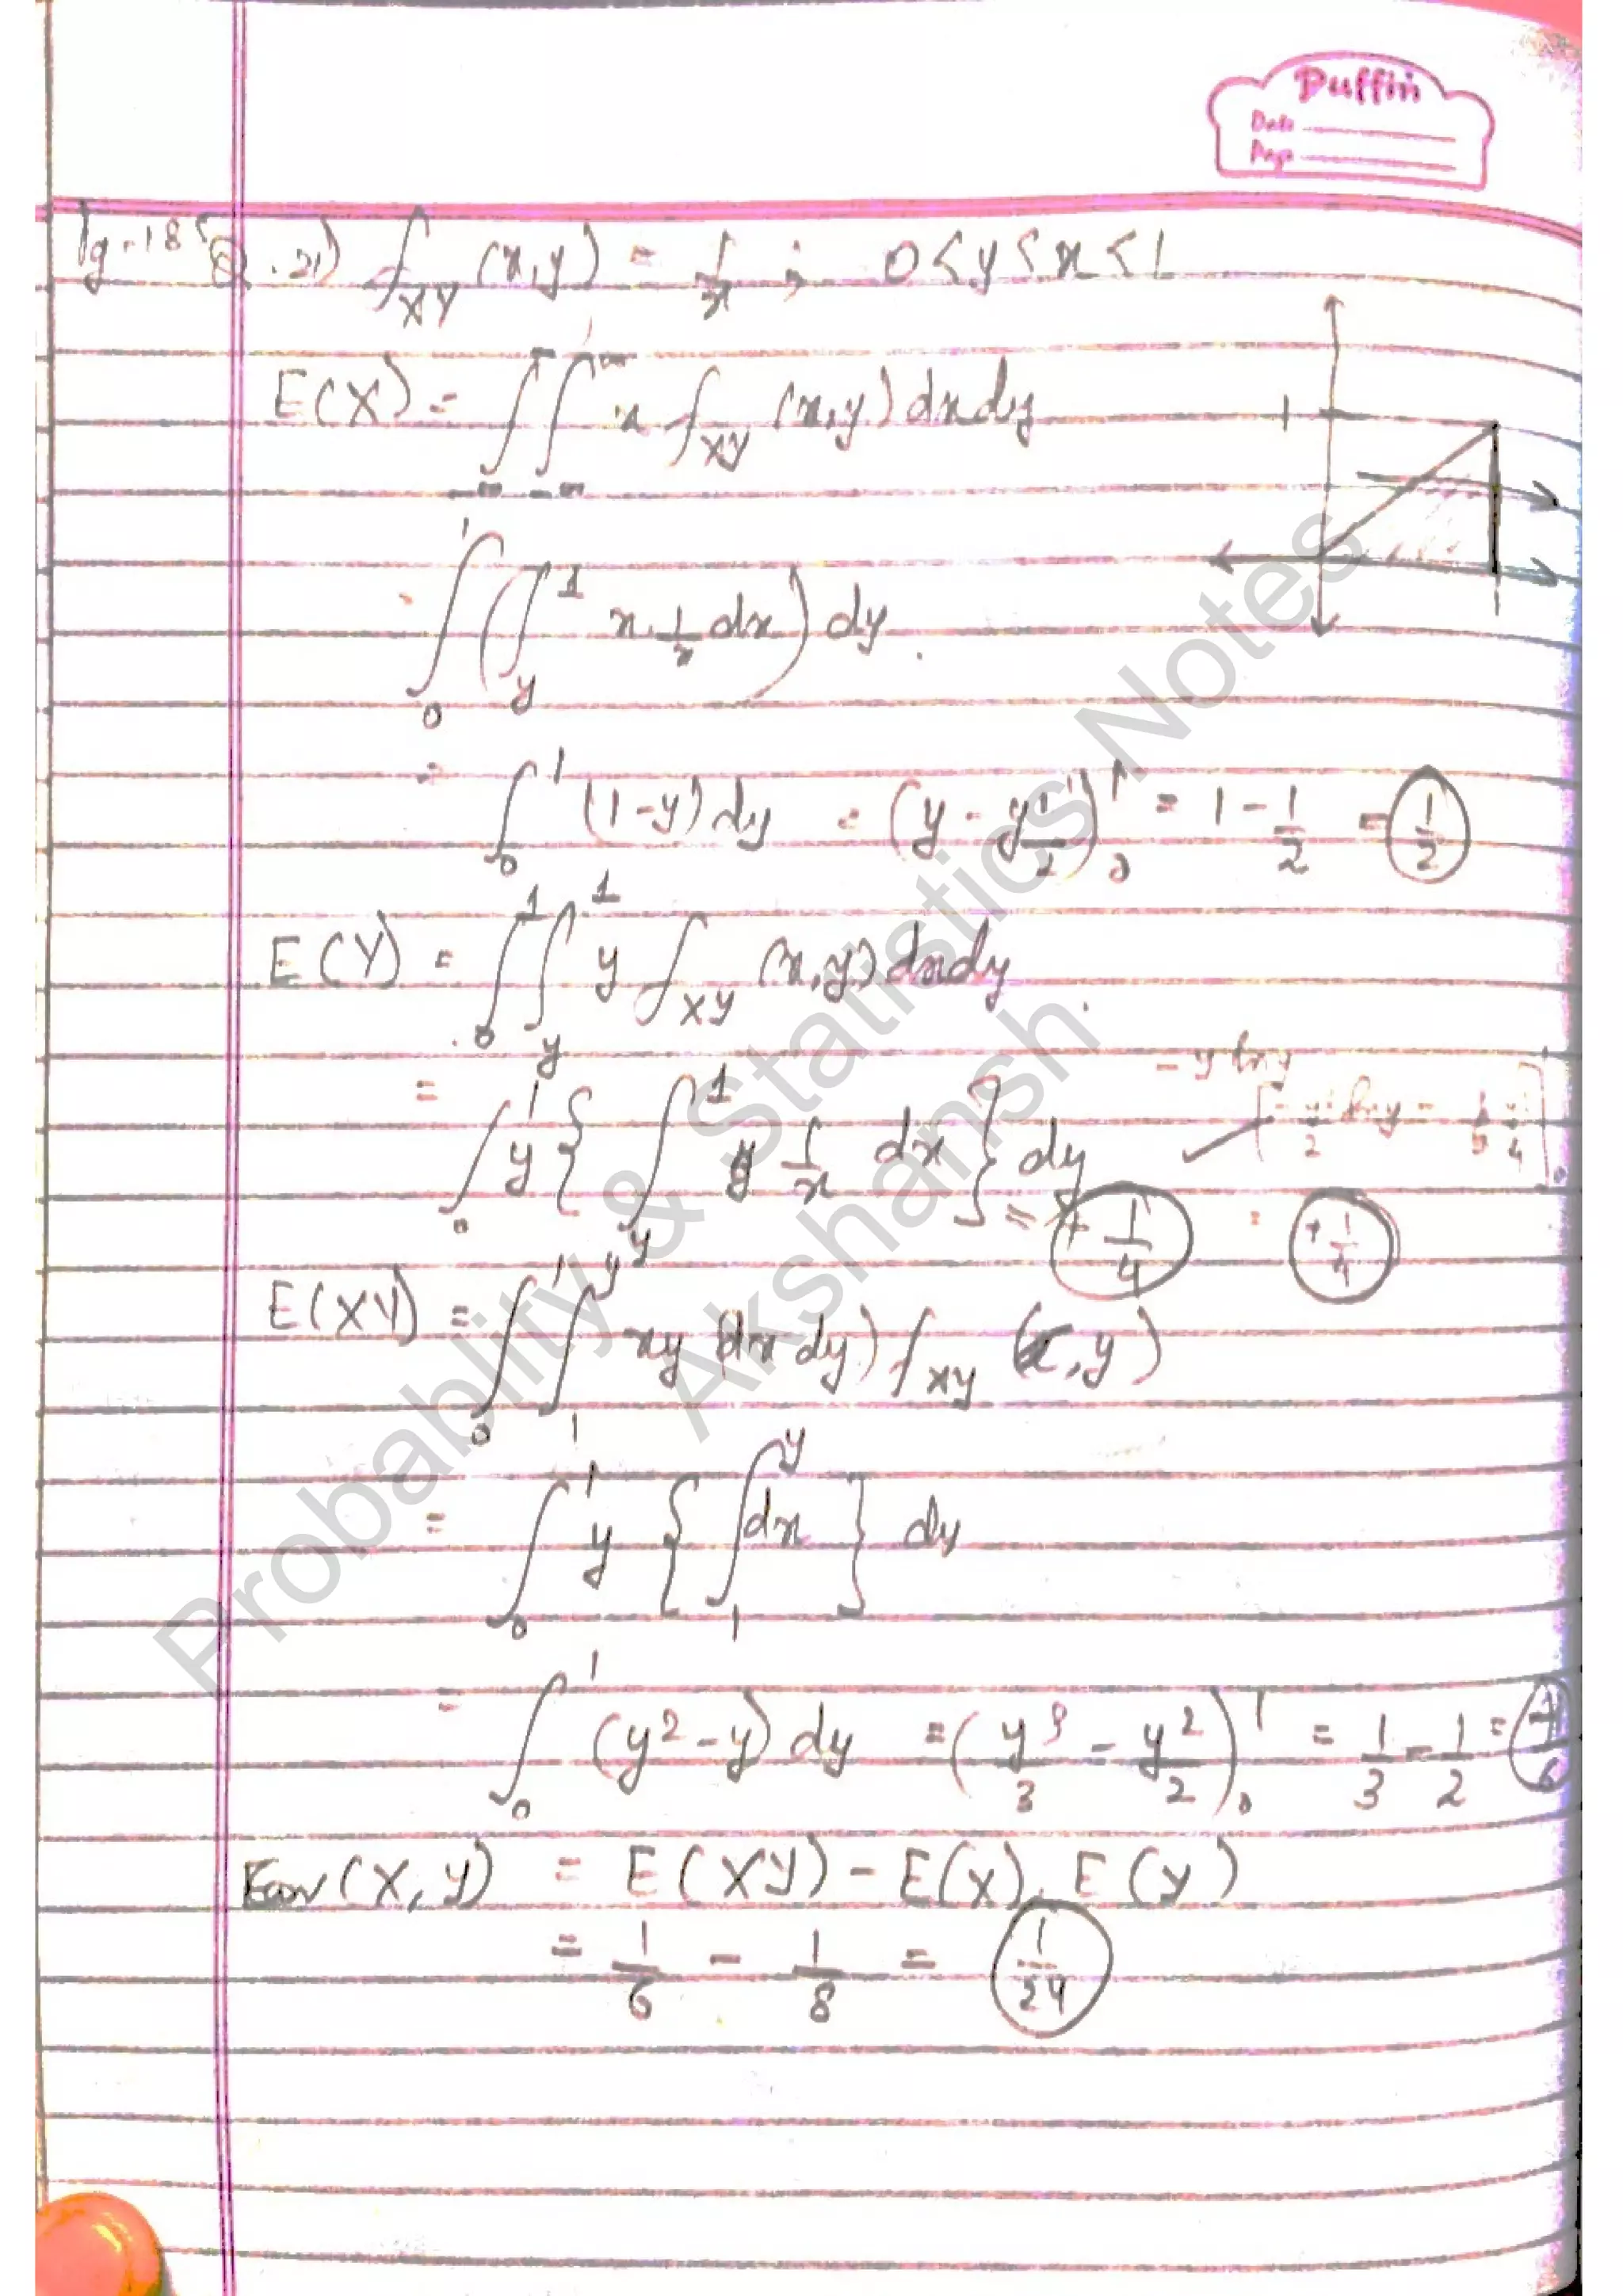 Duffin
Date
Page
Pg-18 (Q.21) f_XY (x,y) = 1/x ; 0<y<x<1
E(X) = ∫_{-∞}^{∞} ∫_{-∞}^{∞} x f_XY (x,y) dx dy
1
= ∫_0^1 (∫_y^1 x · 1/x dx) dy
= ∫_0^1 (1-y) dy = (y - y²/2)_0^1 = 1 - 1/2 = 1/2
E(Y) = ∫_0^1 ∫_y^1 y f_XY (x,y) dx dy
- y ln y
= ∫_0^1 y { ∫_y^1 1/x dx } dy
= + 1/4 = + 1/4
E(XY) = ∫_0^1 ∫_1^y xy (dx dy) f_XY (x,y)
= ∫_0^1 y { ∫_1^y dx } dy
= ∫_0^1 (y² - y) dy = (y³/3 - y²/2)_0^1 = 1/3 - 1/2 =
Cov (X,Y) = E(XY) - E(X). E(Y)
= 1/6 - 1/8 = 1/24
Probability & Statistics Notes
Akshansh